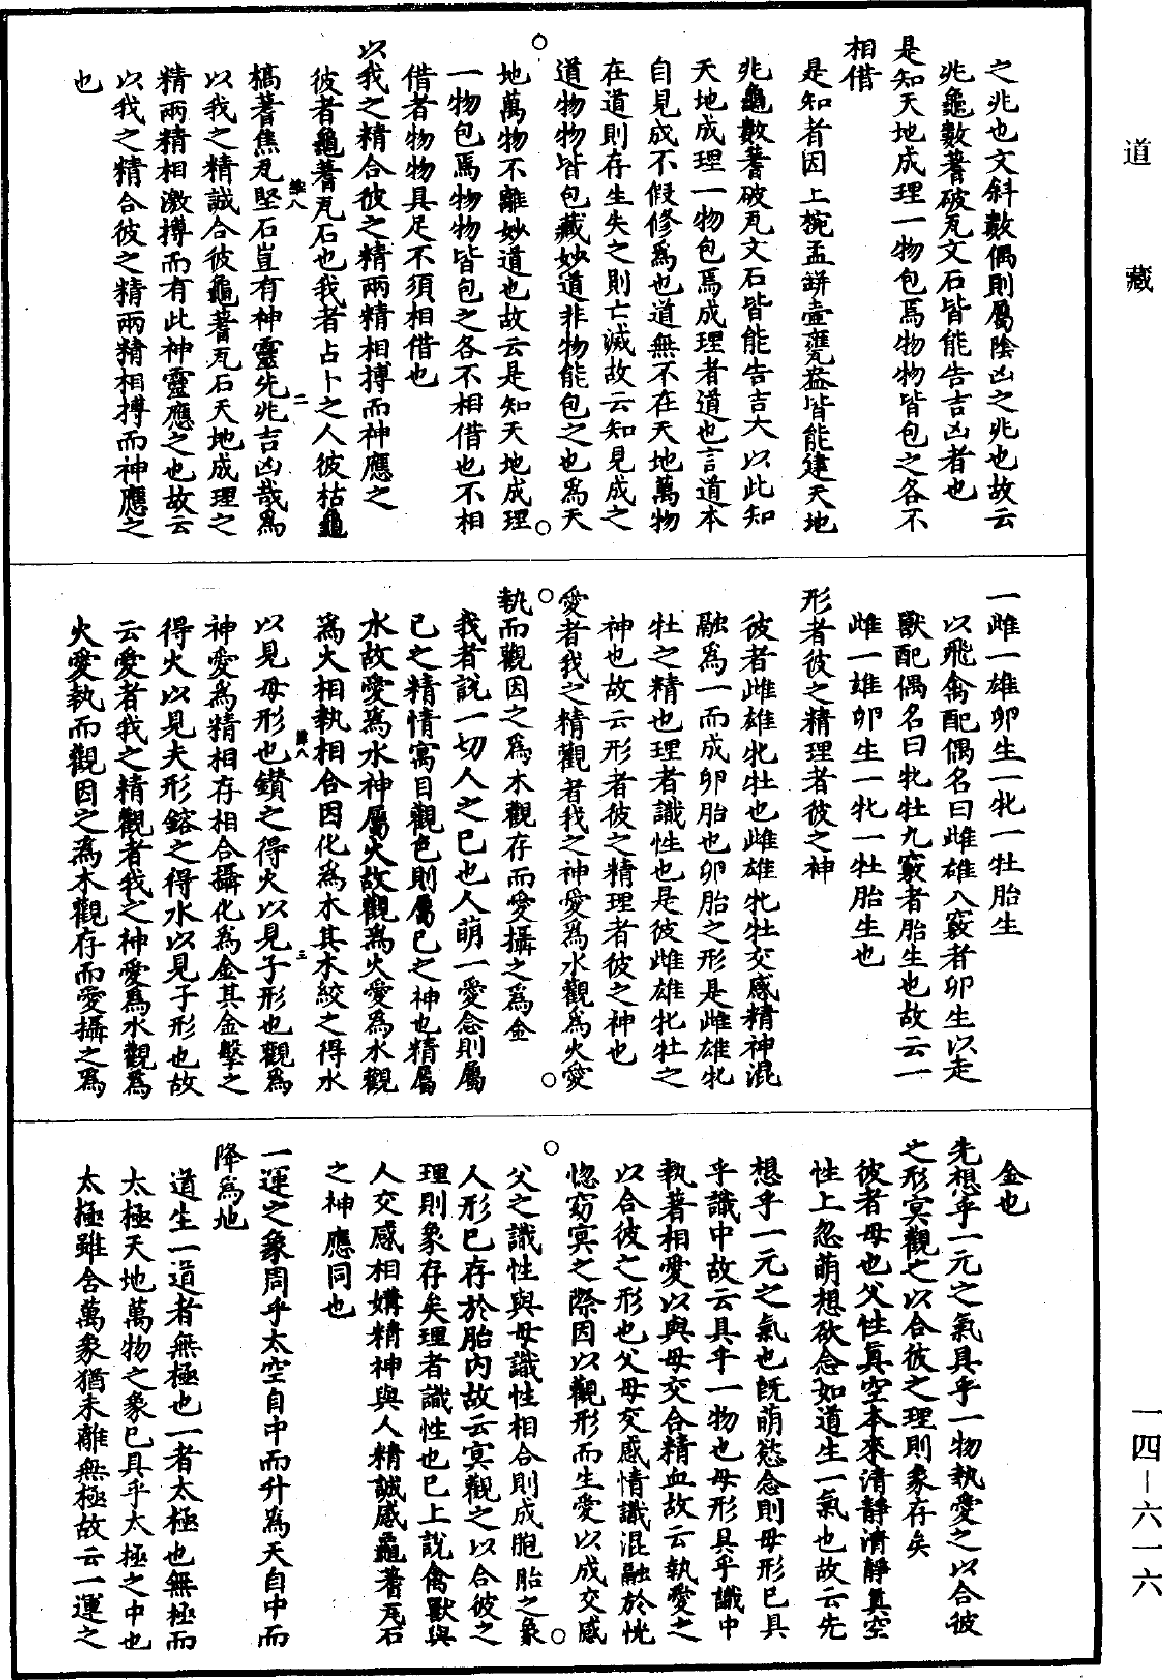 道藏
之兆也文斜數偶則屬陰凶之兆也故云
兆龜數蓍破瓦文石皆能告吉凶者也
是知天地成理一物包焉物物皆包之各不
相借
是知者因上椀盂缾壺甕盎皆能建天地
兆龜數蓍破瓦文石皆能告吉大以此知
天地成理一物包焉成理者道也言道本
自見成不假修為也道無不在天地萬物
在道則存生失之則亡滅故云知見成之
道物物皆包藏妙道非物能包之也為天
地萬物不離妙道也故云是知天地成理
一物包焉物物皆包之各不相借也不相
借者物物具足不須相借也
以我之精合彼之精兩精相搏而神應之
彼者龜蓍瓦石也我者占卜之人彼枯龜
槁蓍焦瓦堅石豈有神靈先兆吉凶哉為
以我之精誠合彼龜蓍瓦石天地成理之
精兩精相激搏而有此神靈應之也故云
以我之精合彼之精兩精相搏而神應之
也
一雌一雄卵生一牝一牡胎生
以飛禽配偶名曰雌雄八竅者卵生以走
獸配偶名曰牝牡九竅者胎生也故云一
雌一雄卵生一牝一牡胎生也
形者彼之精理者彼之神
彼者雌雄牝牡也雌雄牝牡交感精神混
融為一而成卵胎也卵胎之形是雌雄牝
牡之精也理者識性也是彼雌雄牝牡之
神也故云形者彼之精理者彼之神也
愛者我之精觀者我之神愛為水觀為火愛
執而觀因之為木觀存而愛攝之為金
我者說一切人之已也人萌一愛念則屬
已之精情寓目觀色則屬已之神也精屬
水故愛為水神屬火故觀為火愛為水觀
為火相執相合因化為木其木絞之得水
以見母形也鑚之得火以見子形也觀為
神愛為精相存相合攝化為金其金擊之
得火以見夫形鎔之得水以見子形也故
云愛者我之精觀者我之神愛為水觀為
火愛執而觀因之為木觀存而愛攝之為
金也
先想乎一元之氣具乎一物執愛之以合彼
之形冥觀之以合彼之理則象存矣
彼者母也父性真空本來清靜清靜真空
性上忽萌想欲念如道生一氣也故云先
想乎一元之氣也既萌慾念則母形已具
乎識中故云具乎一物也母形具乎識中
執著相愛以與母交合精血故云執愛之
以合彼之形也父母交感情識混融於恍
惚窈冥之際因以觀形而生愛以成交感
父之識性與母識性相合則成胞胎之象
人形已存於胎內故云冥觀之以合彼之
理則象存矣理者識性也已上說禽獸與
人交感相媾精神與人精誠感龜蓍瓦石
之神應同也
一運之象周乎太空自中而升為天自中而
降為地
道生一道者無極也一者太極也無極而
太極天地萬物之象已具乎太極之中也
太極雖含萬象猶未離無極故云一運之
一四—六一六